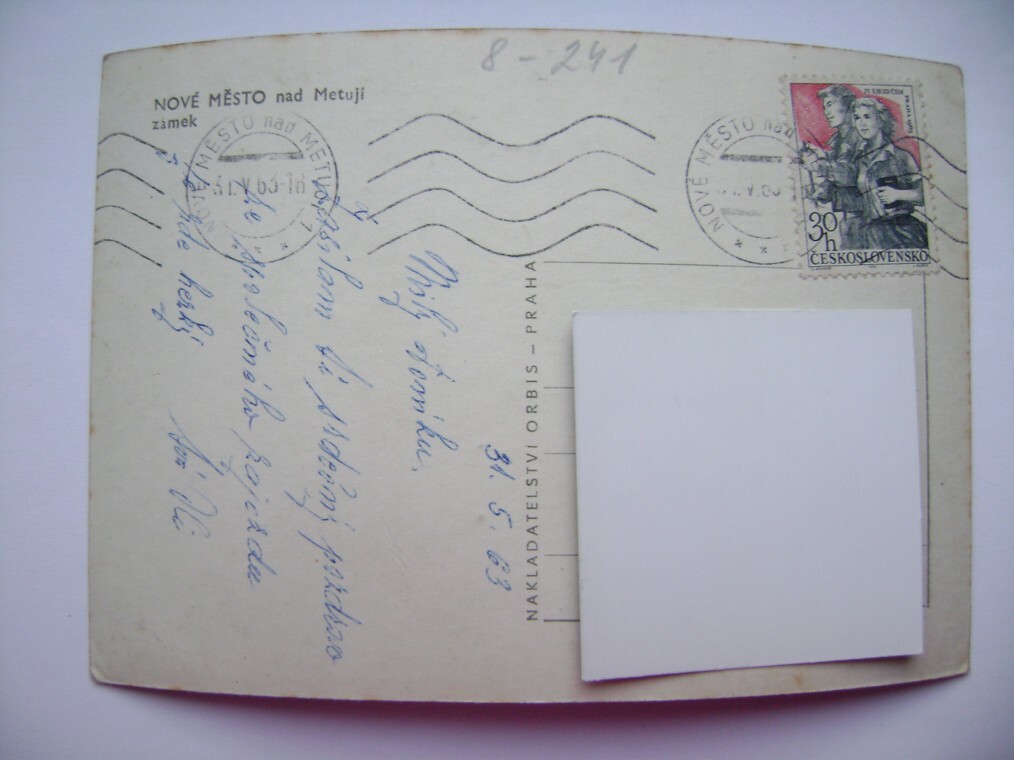 8-241
NOVÉ MĚSTO nad Metují
zámek
NOVÉ MĚSTO nad METUJÍ
31.V.63-18
1
NOVÉ MĚSTO nad
.V.63
IV. SJEZD ČSM
30
h
ČESKOSLOVENSKO
NAKLADATELSTVÍ ORBIS – PRAHA
31. 5. 63
Milý Toníku,
Zasílám Ti srdečný pozdrav
ze společného zájezdu
Je zde hezky